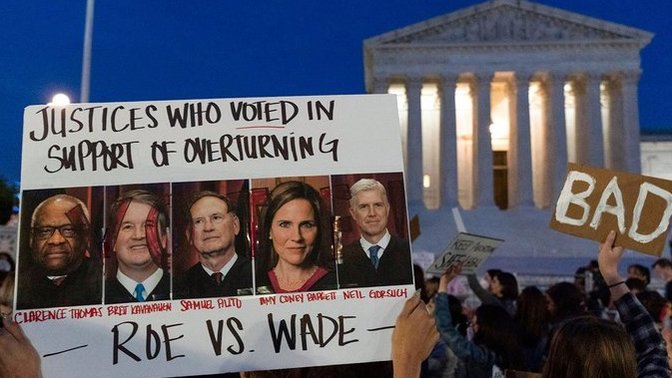 JUSTICES WHO VOTED IN
SUPPORT OF OVERTURNING
CLARENCE THOMAS BRETT KAVANAUGH SAMUEL ALITO AMY CONEY BARRETT NEIL GORSUCH
— ROE VS. WADE —
BAD
KEEP
SAFE